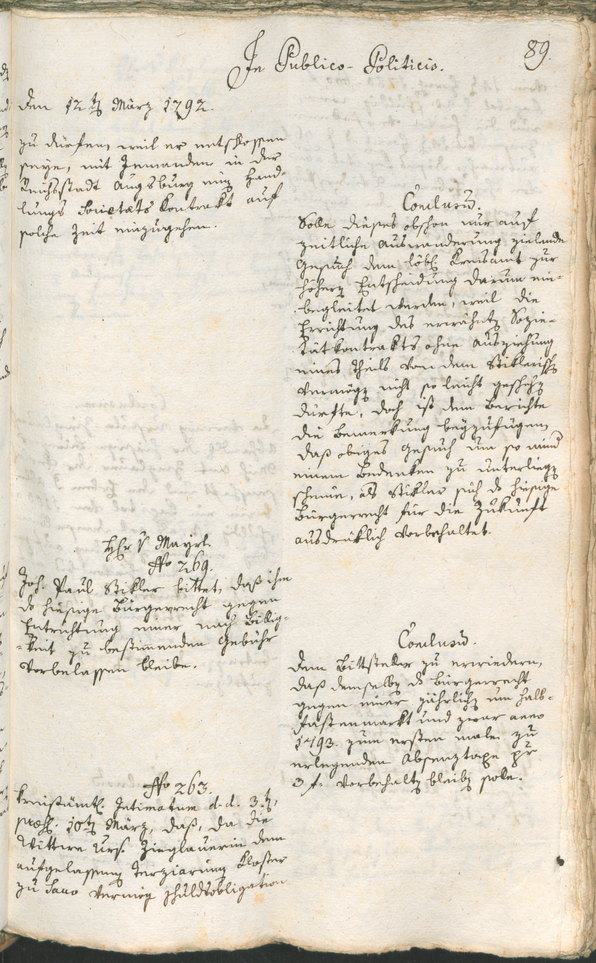 In Publico-Politicis.
89.
den 12tn März 1792.
zu dürfen, weil er entschlossen
seye, mit Jemanden in der
Reichsstadt Augsburg einen Hand-
lungs Societäts Kontrakt auf
solche Zeit einzugehen.
Conclusum.
Solle dieses obschon nur auf
zeitliche Auswanderung zielende
Gesuch dem löbl. Kreisamt zur
höhern Entscheidung darum ein-
begleitet werden, weil die
Errichtung des erwähnten Sozie-
tätkontrakts ohne Ausziehung
eines Theils von dem Stiklerischen
Vermögen nicht so leicht geschehen
dürfte, doch ist dem Berichte
die Bemerkung beyzufügen,
daß obiges Gesuch um so mind
einem Bedenken zu unterliegen
scheine, als Stikler sich ds hiesige
Bürgerrecht für die Zukunft
ausdrüklich vorbehaltet.
Hr v Mayrl.
No 269.
Joh. Paul Stikler bittet, daß ihm
ds hiesige Bürgerrecht gegen
Entrichtung einer nach Billig-
keit zu bestimenden Gebühr
vorbelassen bleibe.
Conclusum.
Dem Bittsteller zu erwiedern,
daß demselben ds Bürgerrecht
gegen einer jährlich um Halb-
fastenmarkt und zwar anno
1793. zum ersten male zu
erlegenden Absenztaxe pr
3 f. vorbehalten bleiben solle.
No 263.
Kreisämtl. Intimatum d. d. 3tn,
praes. 10tn März, daß, da die
Wittwe Urs. Zieglauerin dem
aufgelassenen Terziarinen Kloster
zu Saxo vermög Schuldobligation